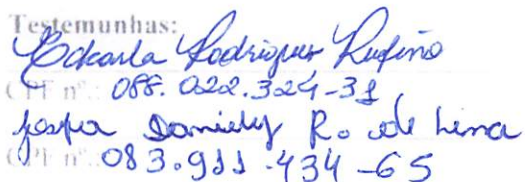 Testemunhas:
Eckarla Rodrigues Rufino
CPF nº.: 088.022.324-31
Josefa Daniely R. de Lima
CPF nº.: 083.911.434-65